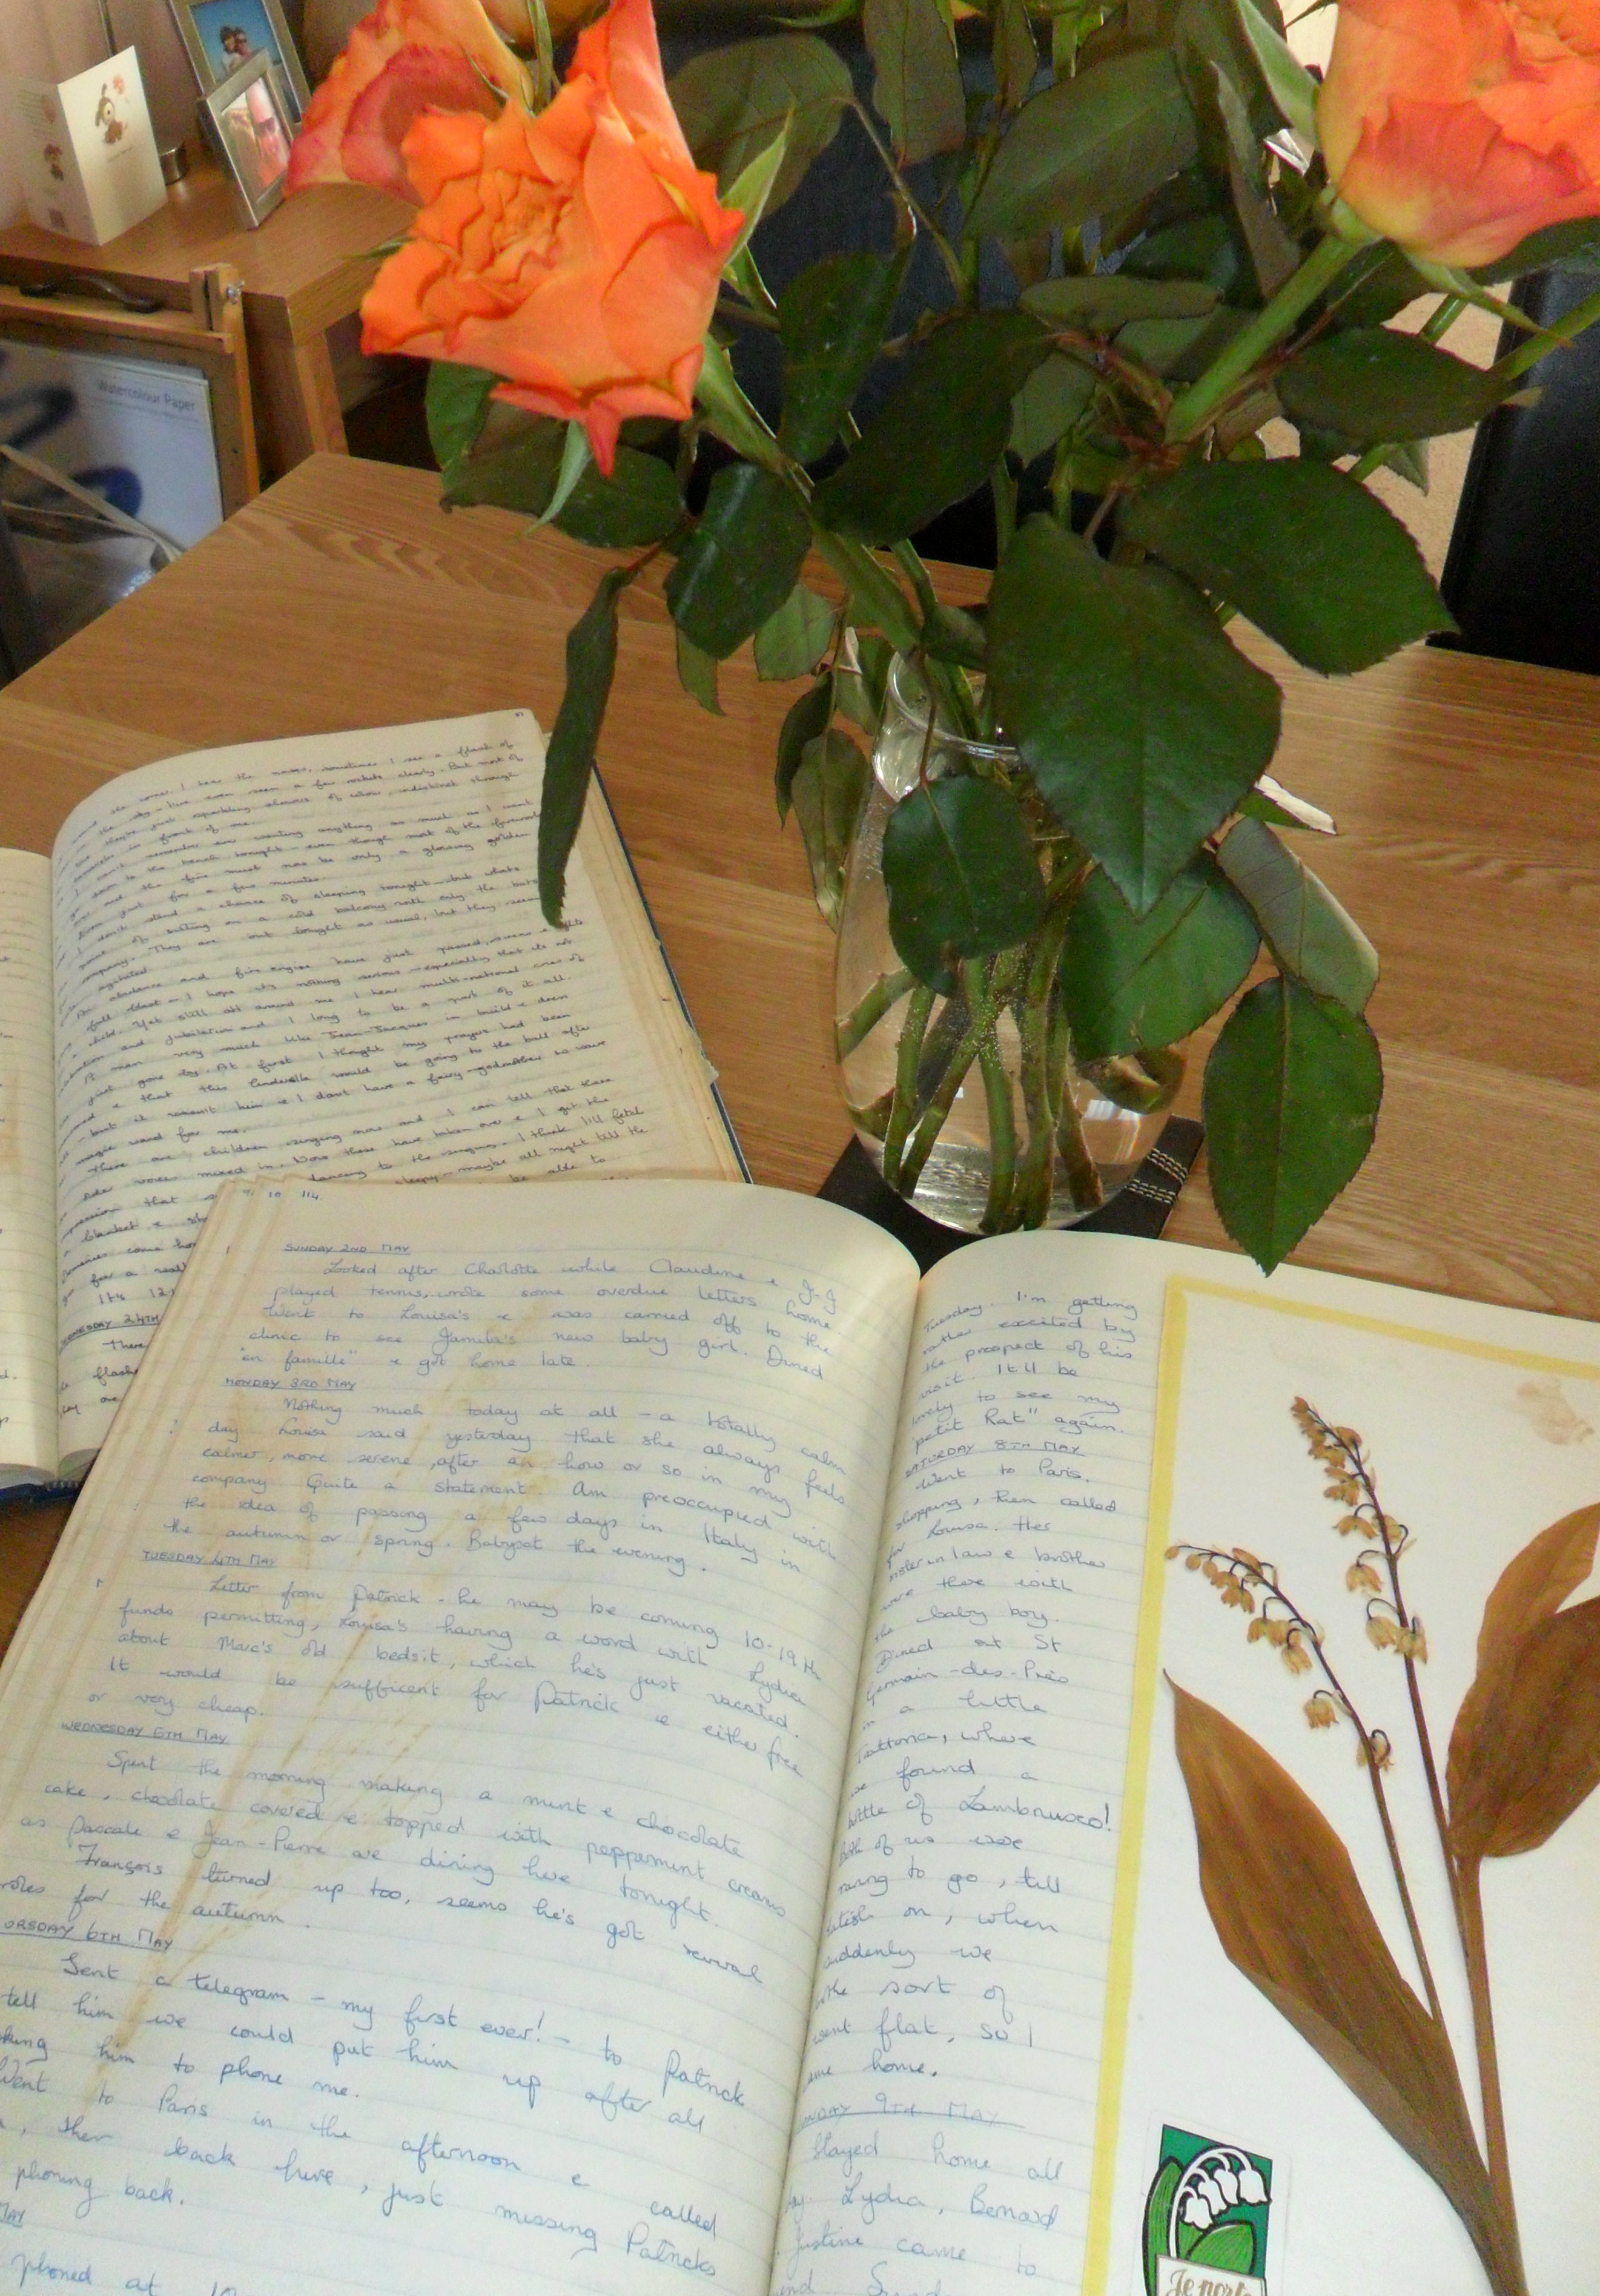 Watercolour Paper
I hear the noises, sometimes I see a flash of
the sky - I've even seen a few rockets clearly. But most of
they're just sparkling showers of colour, indistinct through
in front of me.
remember ever wanting anything as much as I want
down to the beach tonight - even though most of the fireworks
and the fire must now be only a glowing golden
just for a few minutes.
don't stand a chance of sleeping tonight - but what's
of sitting on a cold balcony with only the bats
company. They are out tonight as usual, but they seem
agitated.
ambulance and fire engine have just passed,
full blast - I hope it's nothing serious - especially that it's not
a child. Yet still all around me I hear multi-national cries of
and jubilation and I long to be a part of it all.
A man very much like Jean-Jacques in build & dress
just gone by. At first I thought my prayers had been
& that this Cinderella would be going to the ball after
- but it wasn't him & I don't have a fairy-godmother to wave
magic wand for me.
There are children singing now and I can tell that there
voices mixed in. Now these have taken over & I get the
that dancing to the singing. I think I'll fetch
blanket & sleepy - maybe all night till the
come home be able to
for a real
It's 12
24TH
There
flash
114
SUNDAY 2ND MAY
Looked after Charlotte while Claudine & J-J
played tennis, wrote some overdue letters home
Went to Louisa's & was carried off to the
clinic to see Jamila's new baby girl. Dined
"en famille" & got home late.
MONDAY 3RD MAY
Nothing much today at all - a totally calm
day. Louisa said yesterday that she always feels
calmer, more serene, after an hour or so in my
company. Quite a statement. Am preoccupied with
the idea of passing a few days in Italy in
the autumn or spring. Babysat the evening.
TUESDAY 4TH MAY
Letter from Patrick - he may be coming 10-19th
funds permitting, Louisa's having a word with Lydia
about Marc's old bedsit, which he's just vacated.
It would be sufficent for Patrick & either free
or very cheap.
WEDNESDAY 5TH MAY
Spent the morning making a mint & chocolate
cake, chocolate covered & topped with peppermint creams
as Pascale & Jean-Pierre are dining here tonight.
François turned up too, seems he's got several
roles for the autumn.
ORSDAY 6TH MAY
Sent a telegram - my first ever! - to Patrick
tell him we could put him up after all
king him to phone me.
Went to Paris in the afternoon & called
, then back here, just missing Patricks
phoning back.
MAY
phoned at 10
Tuesday. I'm getting
rather excited by
the prospect of his
visit. It'll be
lovely to see my
"petit Rat" again.
SATURDAY 8TH MAY
Went to Paris.
shopping, then called
for Louisa. Her
sister in law & brother
were there with
the baby boy.
Dined at St
Germain-des-Prés
in a little
Trattoria, where
we found a
bottle of Lambrusco!
Both of us were
raring to go, till
latish on, when
suddenly we
both sort of
went flat, so I
came home.
UNDAY 9TH MAY
Stayed home all
day. Lydia, Bernard
Justine came to
Je porte